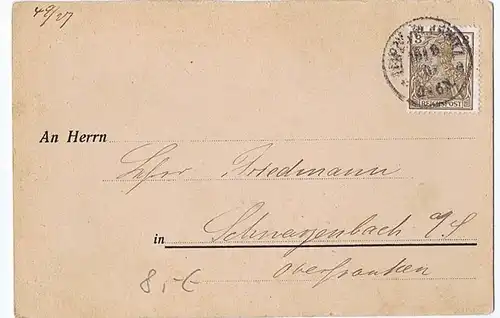 49/27
REICHSPOST
An Herrn
Lehrer Friedmann
in Schwarzenbach a/S
Oberfranken
8,-€